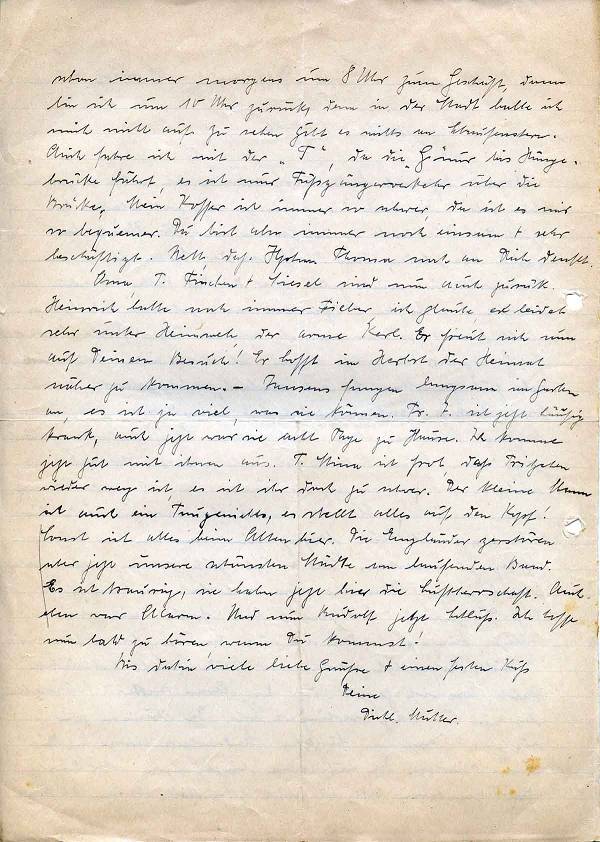 schon immer morgens um 8 Uhr zum Geschäft, dann
bin ich um 10 Uhr zurück, denn in der Stadt halte ich
mich nicht auf. Zu sehen gibt es nichts an Schaufenstern.
Auch fahre ich mit der "T", da die nur bis Hänge-
brücke fährt, es ist nur Fußgängerverkehr über die
Brücke. Mein Koffer ist immer so schwer, da ist es mir
so bequemer. Du bist also immer noch einsam + sehr
beschäftigt. Nett, daß Thoma noch an Dich denkt.
Oma, T. Finchen + Liesel sind nun auch zurück.
Heinrich hatte noch immer Fieber, ich glaube er leidet
sehr unter Heimweh, der arme Kerl. Er freut sich nun
auf Deinen Besuch! Er hofft im Herbst der Heimat
näher zu kommen. – Jansens fangen langsam im Garten
an, es ist ja viel, was sie können. Fr. J. ist jetzt häufig
krank, auch jetzt war sie acht Tage zu Hause. Ich komme
jetzt gut mit ihnen aus. T. Mina ist froh, daß Fritzchen
wieder weg ist, es ist ihr doch zu schwer. Der kleine Mann
ist auch ein Taugenichts, er stellt alles auf den Kopf!
Sonst ist alles beim Alten hier. Die Engländer zerstören
aber jetzt unsere schönsten Städte am laufenden Band.
Es ist traurig, sie haben jetzt hier die Luftherrschaft. Auch
eben war Alarm. Und nun Rudolf jetzt Schluß. Ich hoffe
nun bald zu hören, wann Du kommst!
Bis dahin viele liebe Grüße + einen festen Kuß
Deine
Dichl. Mutter.